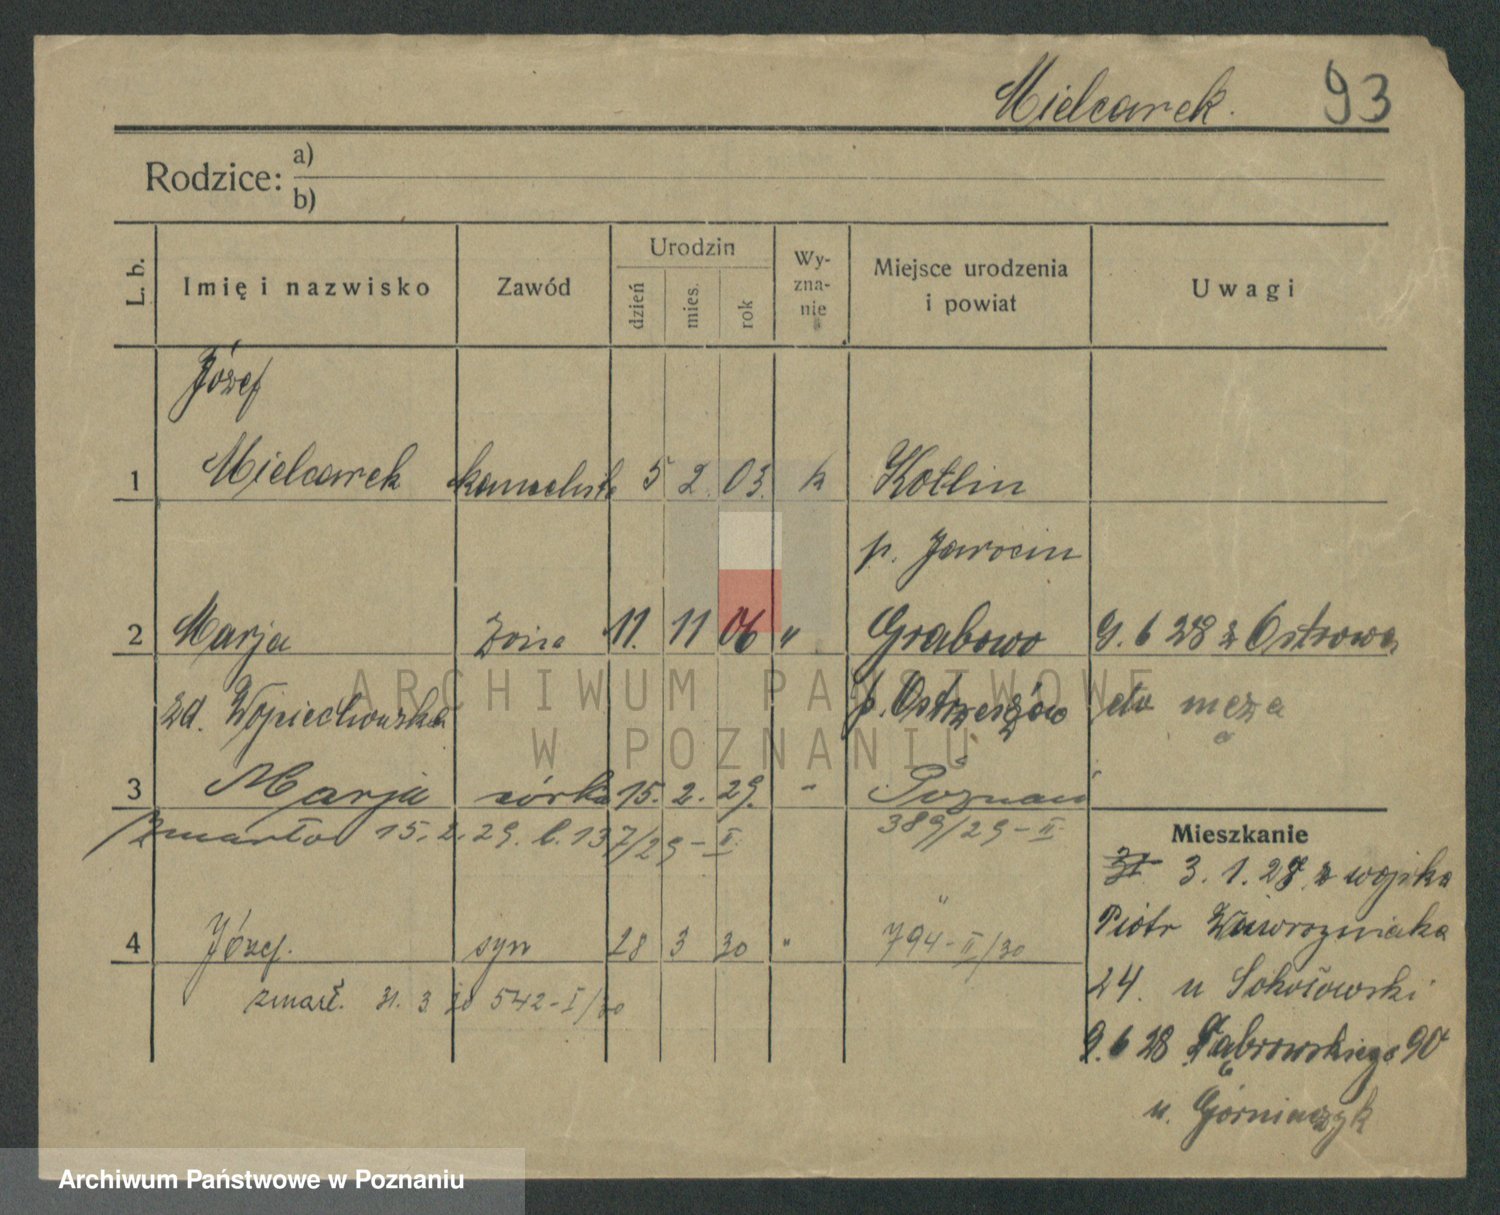 Mielcarek. 93
Rodzice: a)
b)
L. b. Imię i nazwisko Zawód Urodzin dzień mies. rok Wy-zna-nie Miejsce urodzenia i powiat Uwagi
Józef
1 Mielcarek 5 2. 03. k Kotlin
p. Jarocin
2 Marja żona 11. 11 06 " Grabowo 9. 6 28 z Ostrowa
zd. Wojciechowska p. Ostrzeszów do męża
3 Marja córka 15. 2. 29. " Poznań
zmarła 15. 2. 29. l. 137/29-II. 389/29-II
Mieszkanie
3. 1. 27. z wojska
Piotr Wawrzyniaka
4 Józef. syn 28 3 30 " " 794-II/30
24. u Sokołowski
zmarł. 31. 3 30 542-I/30
9. 6 28 Dąbrowskiego 90
u. Górniaczyk
ARCHIWUM PAŃSTWOWE
W POZNANIU
Archiwum Państwowe w Poznaniu